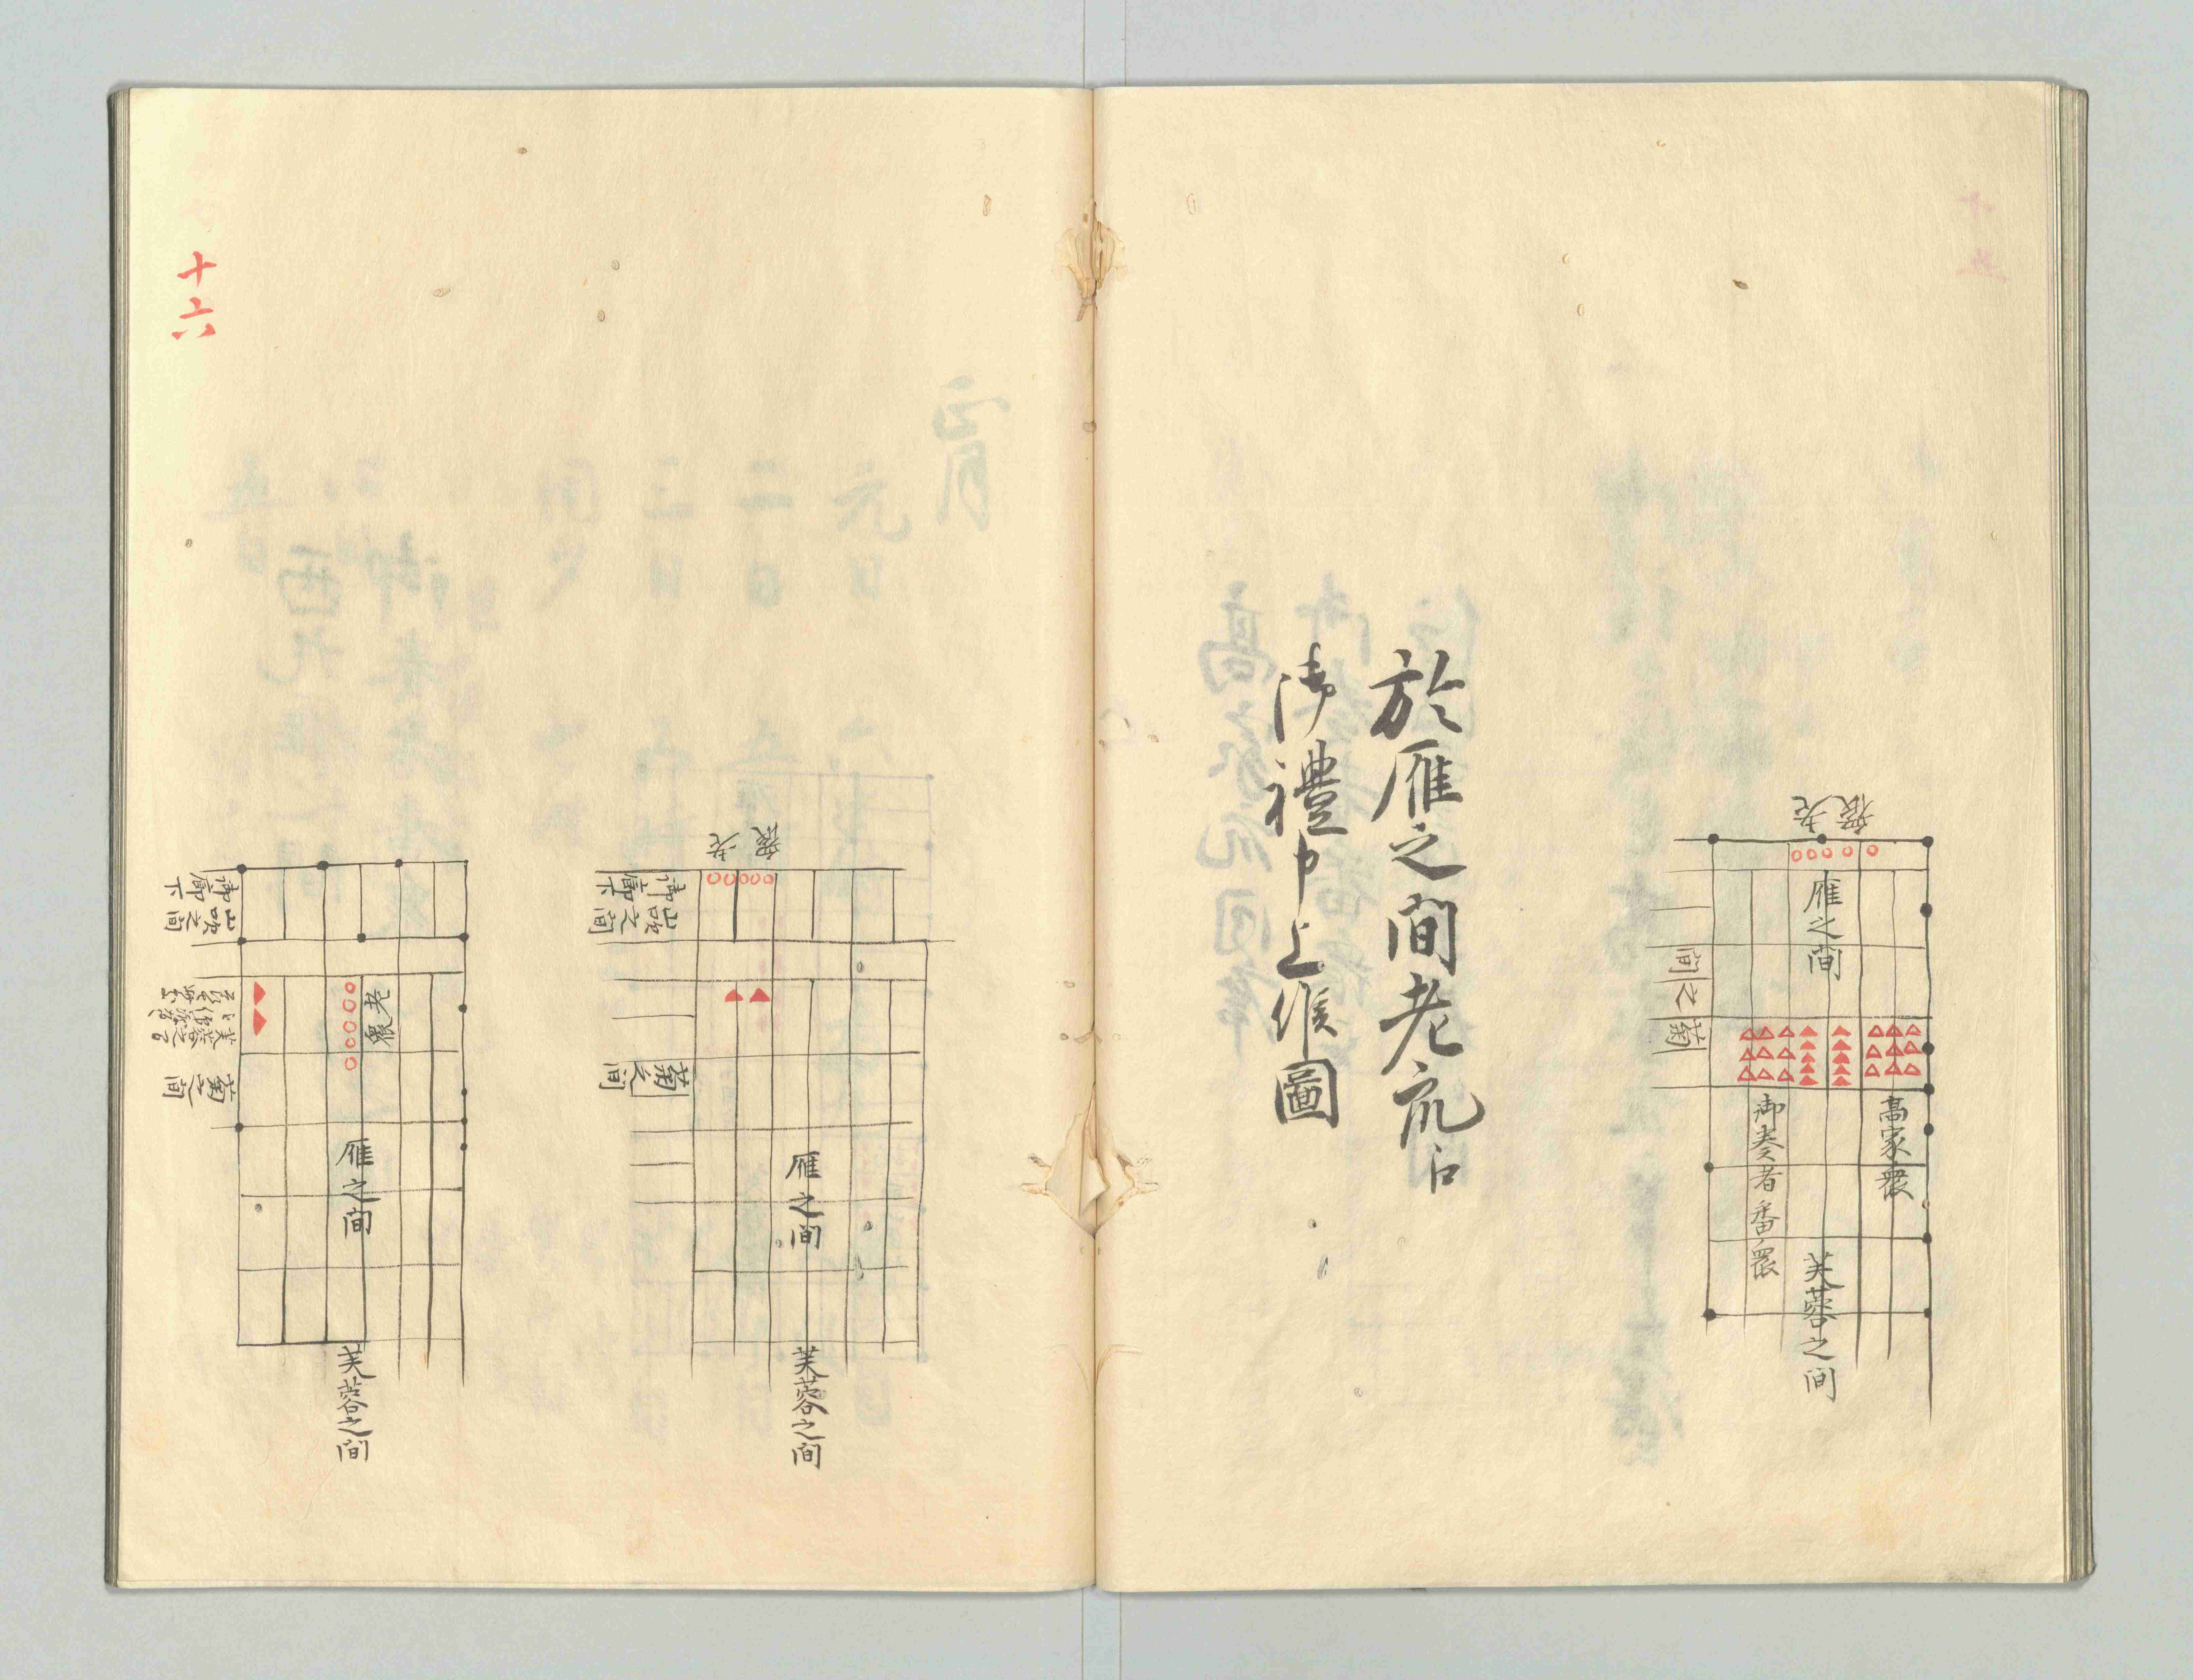 老衆
雁之間
菊之間
高家衆
御奏者番衆
芙蓉之間
於雁之間老衆江
御禮申上候圖
老衆
御廊下
山吹之間
菊之間
雁之間
芙蓉之間
御廊下
山吹之間
老衆
菊之間
雁之間
芙蓉之間
十六